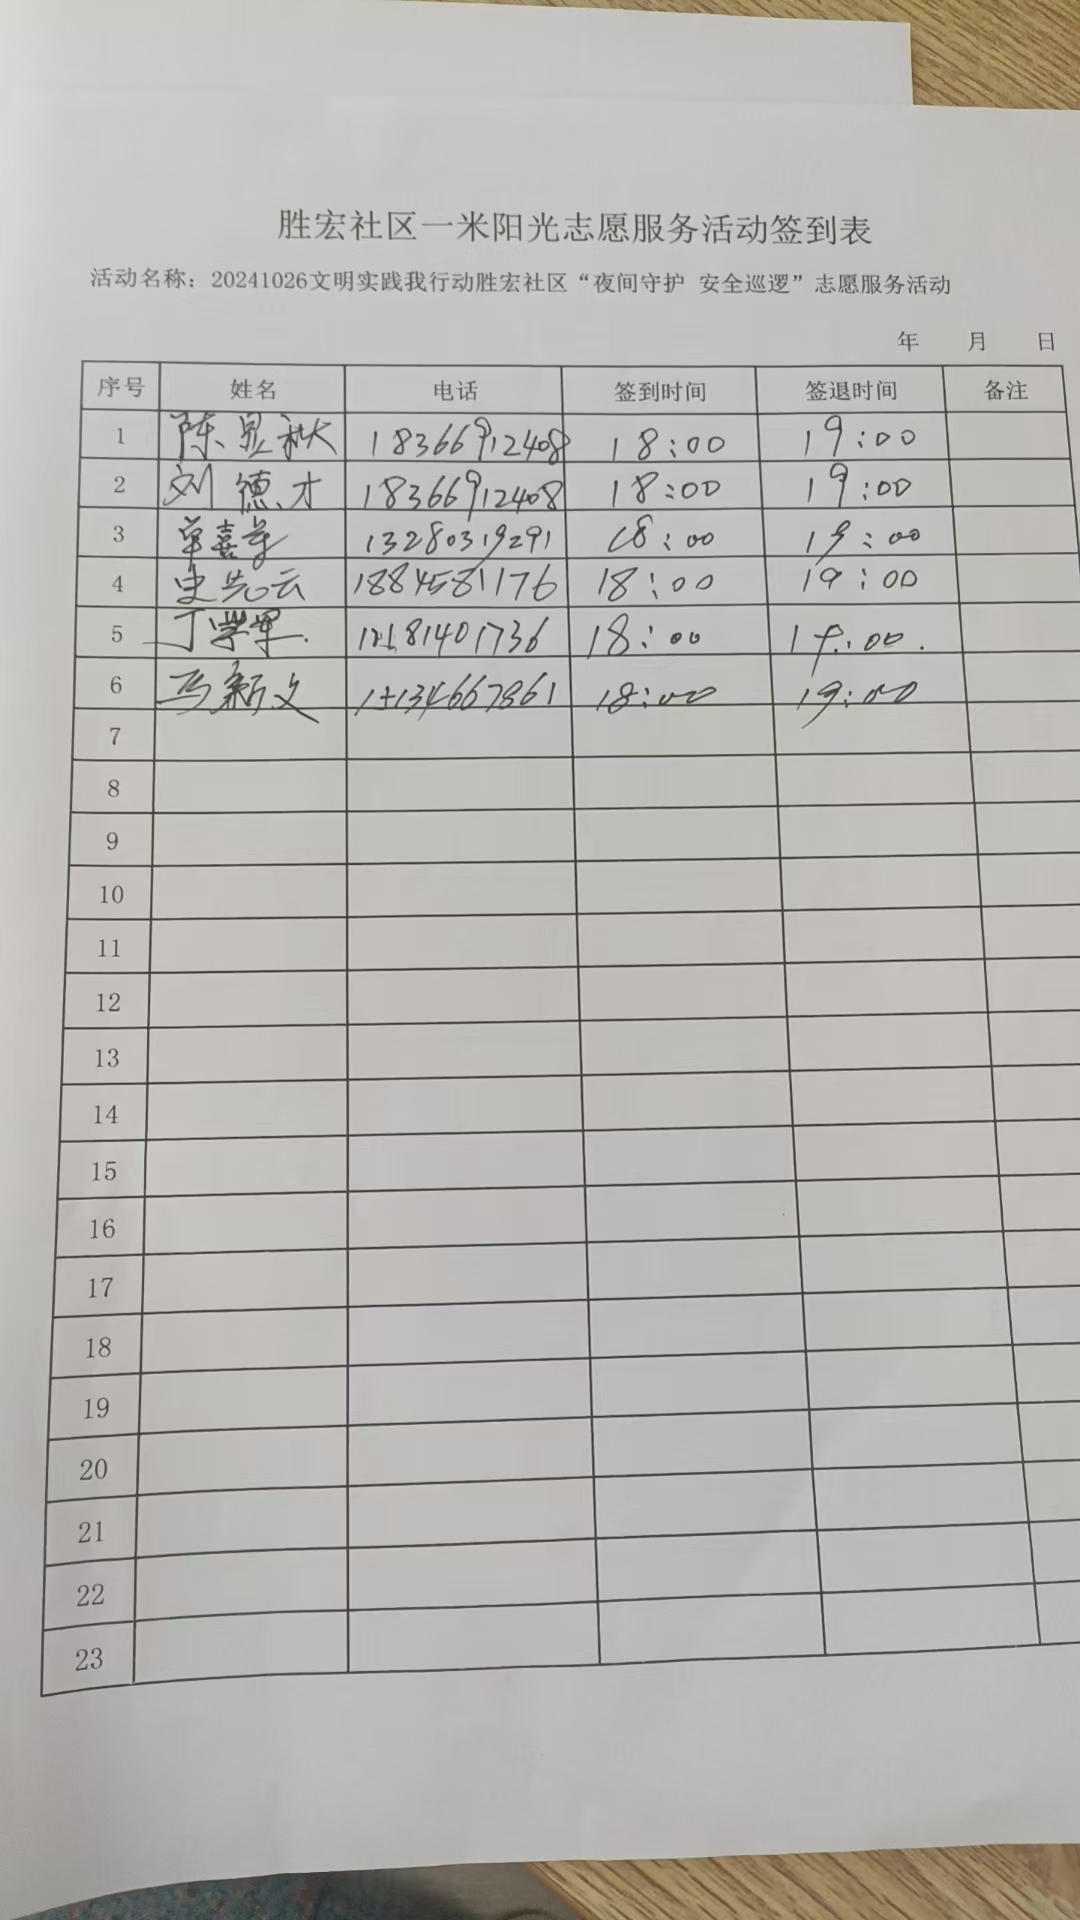 胜宏社区一米阳光志愿服务活动签到表
活动名称：20241026文明实践我行动胜宏社区“夜间守护 安全巡逻”志愿服务活动
年 月 日
序号 姓名 电话 签到时间 签退时间 备注
1 陈显秋 18366912408 18:00 19:00
2 刘德才 18366912408 18:00 19:00
3 单喜 13280319291 18:00 19:00
4 史先云 1884581176 18:00 19:00
5 丁学军. 18:00 19:00.
6 马新文 18:00 19:00
7
8
9
10
11
12
13
14
15
16
17
18
19
20
21
22
23